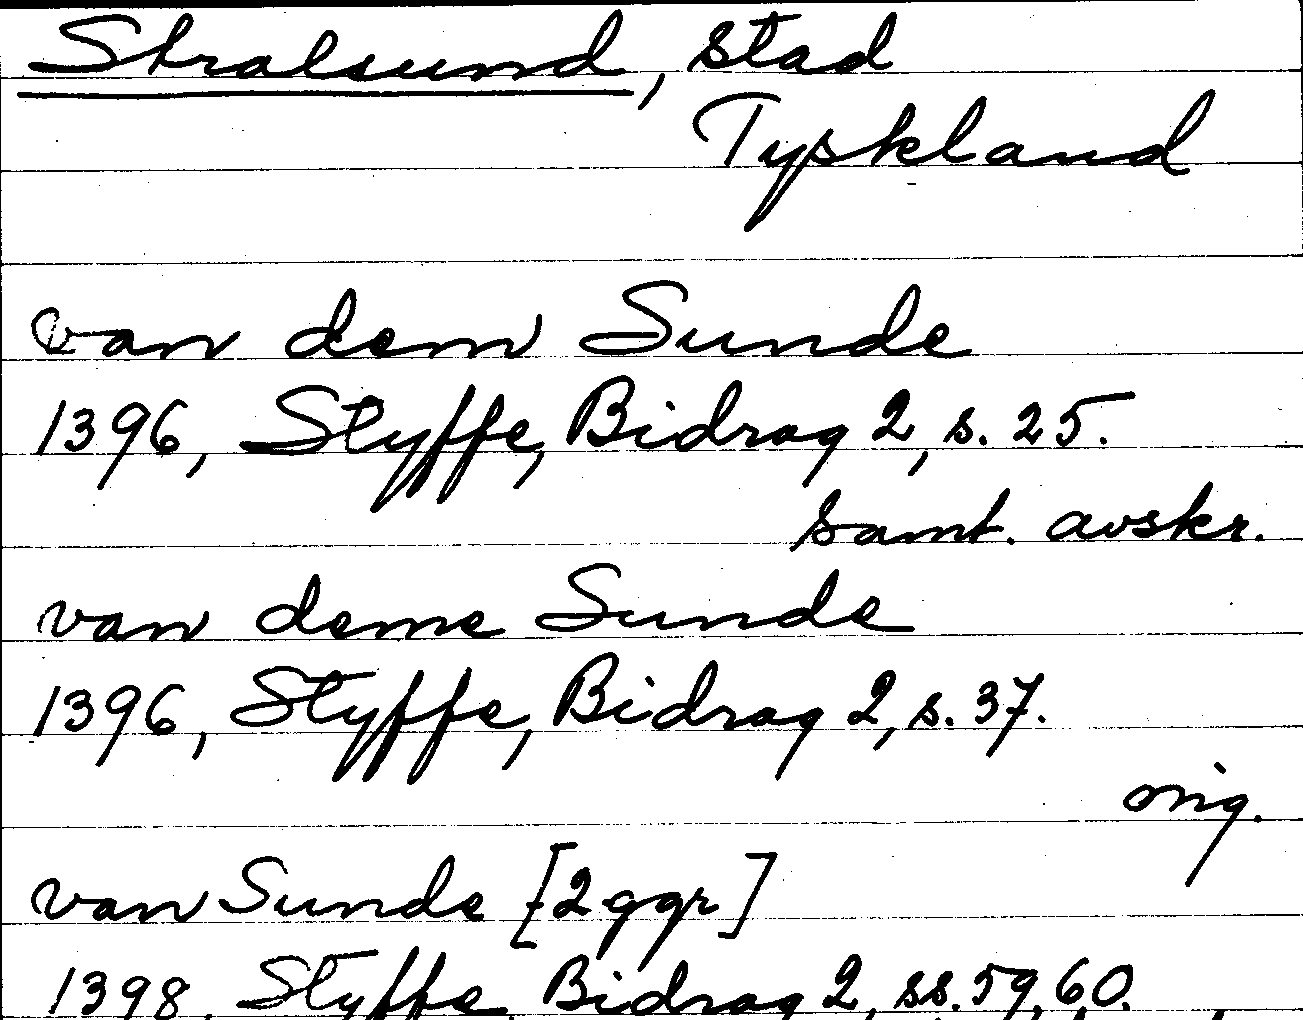 Stralsund, stad
Tyskland
van dem Sunde
1396, Styffe, Bidrag 2, s. 25.
samt. avskr.
van deme Sunde
1396, Styffe, Bidrag 2, s. 37.
orig.
van Sunde [2 ggr]
1398, Styffe, Bidrag 2, ss. 59, 60.